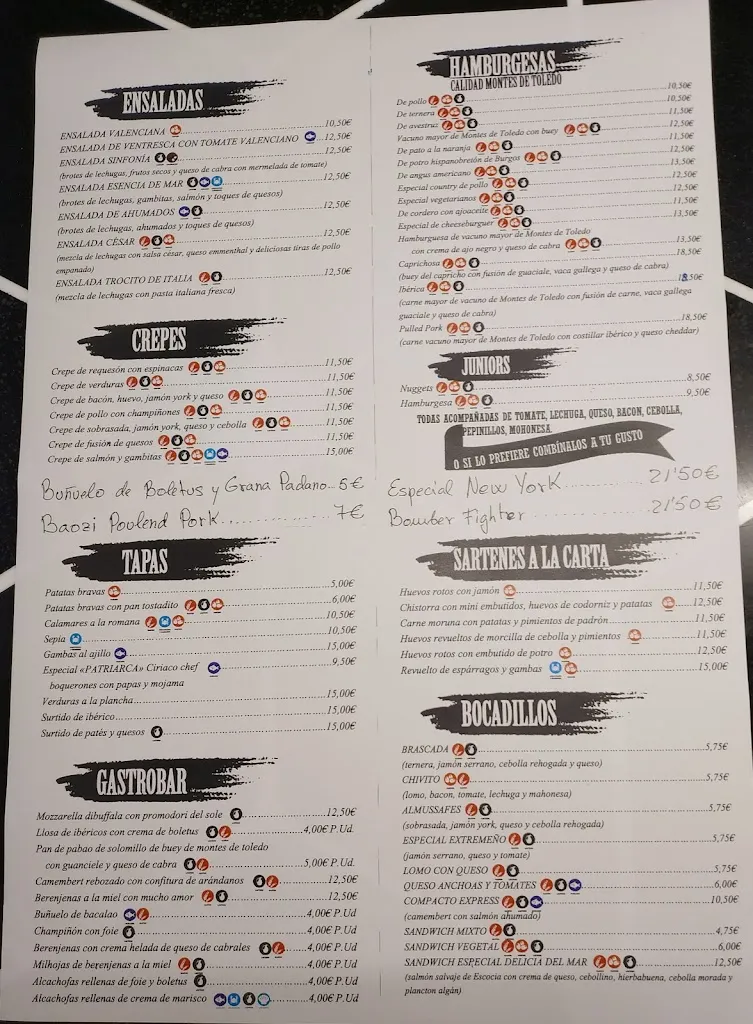 ENSALADAS
ENSALADA VALENCIANA 10,50€
ENSALADA DE VENTRESCA CON TOMATE VALENCIANO 12,50€
ENSALADA SINFONÍA 12,50€
(brotes de lechugas, frutos secos y queso de cabra con mermelada de tomate)
ENSALADA ESENCIA DE MAR 12,50€
(brotes de lechugas, gambitas, salmón y toques de queso)
ENSALADA DE AHUMADOS 12,50€
(brotes de lechugas, ahumados y toques de queso)
ENSALADA CÉSAR 12,50€
(mezcla de lechugas con salsa césar, queso emmenthal y deliciosas tiras de pollo
empanado)
ENSALADA TROCITO DE ITALIA 12,50€
(mezcla de lechugas con pasta italiana fresca)
CREPES
Crepe de requesón con espinacas 11,50€
Crepe de verduras 11,50€
Crepe de bacón, huevo, jamón york y queso 11,50€
Crepe de pollo con champiñones 11,50€
Crepe de sobrasada, jamón york, queso y cebolla 11,50€
Crepe de fusión de quesos 11,50€
Crepe de salmón y gambitas 15,00€
Buñuelo de Boletus y Grana Padano... 5€
Baozi Poulend Pork........... 7€
TAPAS
Patatas bravas 5,00€
Patatas bravas con pan tostadito 6,00€
Calamares a la romana 10,50€
Sepia 10,50€
Gambas al ajillo 15,00€
Especial «PATRIARCA» Ciriaco chef 9,50€
boquerones con papas y mojama
Verduras a la plancha 15,00€
Surtido de ibérico 15,00€
Surtido de patés y quesos 15,00€
GASTROBAR
Mozzarella dibuffala con promodori del sole 12,50€
Llosa de ibéricos con crema de boletus 4,00€ P.Ud.
Pan de pabao de solomillo de buey de montes de toledo
con guanciele y queso de cabra 5,00€ P.Ud.
Camembert rebozado con confitura de arándanos 12,50€
Berenjenas a la miel con mucho amor 12,50€
Buñuelo de bacalao 4,00€ P.Ud
Champiñón con foie 4,00€ P.Ud
Berenjenas con crema helada de queso de cabrales 4,00€ P.Ud
Milhojas de berenjenas a la miel 4,00€ P.Ud
Alcachofas rellenas de foie y boletus 4,00€ P.Ud
Alcachofas rellenas de crema de marisco 4,00€ P.Ud
HAMBURGESAS
CALIDAD MONTES DE TOLEDO
De pollo 10,50€
De ternera 10,50€
De avestruz 11,50€
Vacuno mayor de Montes de Toledo con buey 12,50€
De pato a la naranja 11,50€
De potro hispanobretón de Burgos 12,50€
De angus americano 13,50€
Especial country de pollo 12,50€
Especial vegetarianos 12,50€
De cordero con ajoaceite 11,50€
Especial de cheeseburguer 13,50€
Hamburguesa de vacuno mayor de Montes de Toledo
con crema de ajo negro y queso de cabra 13,50€
Caprichosa 18,50€
(buey del capricho con fusión de guaciale, vaca gallega y queso de cabra)
Ibérica 18,50€
(carne mayor de vacuno de Montes de Toledo con fusión de carne, vaca gallega
guaciale y queso de cabra)
Pulled Pork 18,50€
(carne vacuno mayor de Montes de Toledo con costillar ibérico y queso cheddar)
JUNIORS
Nuggets 8,50€
Hamburgesa 9,50€
TODAS ACOMPAÑADAS DE TOMATE, LECHUGA, QUESO, BACON, CEBOLLA,
PEPINILLOS, MOHONESA.
O SI LO PREFIERE COMBÍNALOS A TU GUSTO
Especial New York............ 21'50€
Bomber Fighter............ 21'50€
SARTENES A LA CARTA
Huevos rotos con jamón 11,50€
Chistorra con mini embutidos, huevos de codorniz y patatas 12,50€
Carne moruna con patatas y pimientos de padrón 11,50€
Huevos revueltos de morcilla de cebolla y pimientos 11,50€
Huevos rotos con embutido de potro 12,50€
Revuelto de espárragos y gambas 15,00€
BOCADILLOS
BRASCADA 5,75€
(ternera, jamón serrano, cebolla rehogada y queso)
CHIVITO 5,75€
(lomo, bacon, tomate, lechuga y mahonesa)
ALMUSSAFES 5,75€
(sobrasada, jamón york, queso y cebolla rehogada)
ESPECIAL EXTREMEÑO 5,75€
(jamón serrano, queso y tomate)
LOMO CON QUESO 5,75€
QUESO ANCHOAS Y TOMATES 6,00€
COMPACTO EXPRESS 10,50€
(camembert con salmón ahumado)
SANDWICH MIXTO 4,75€
SANDWICH VEGETAL 6,00€
SANDWICH ESPECIAL DELICIA DEL MAR 12,50€
(salmón salvaje de Escocia con crema de queso, cebollino, hierbabuena, cebolla morada y
plancton algán)